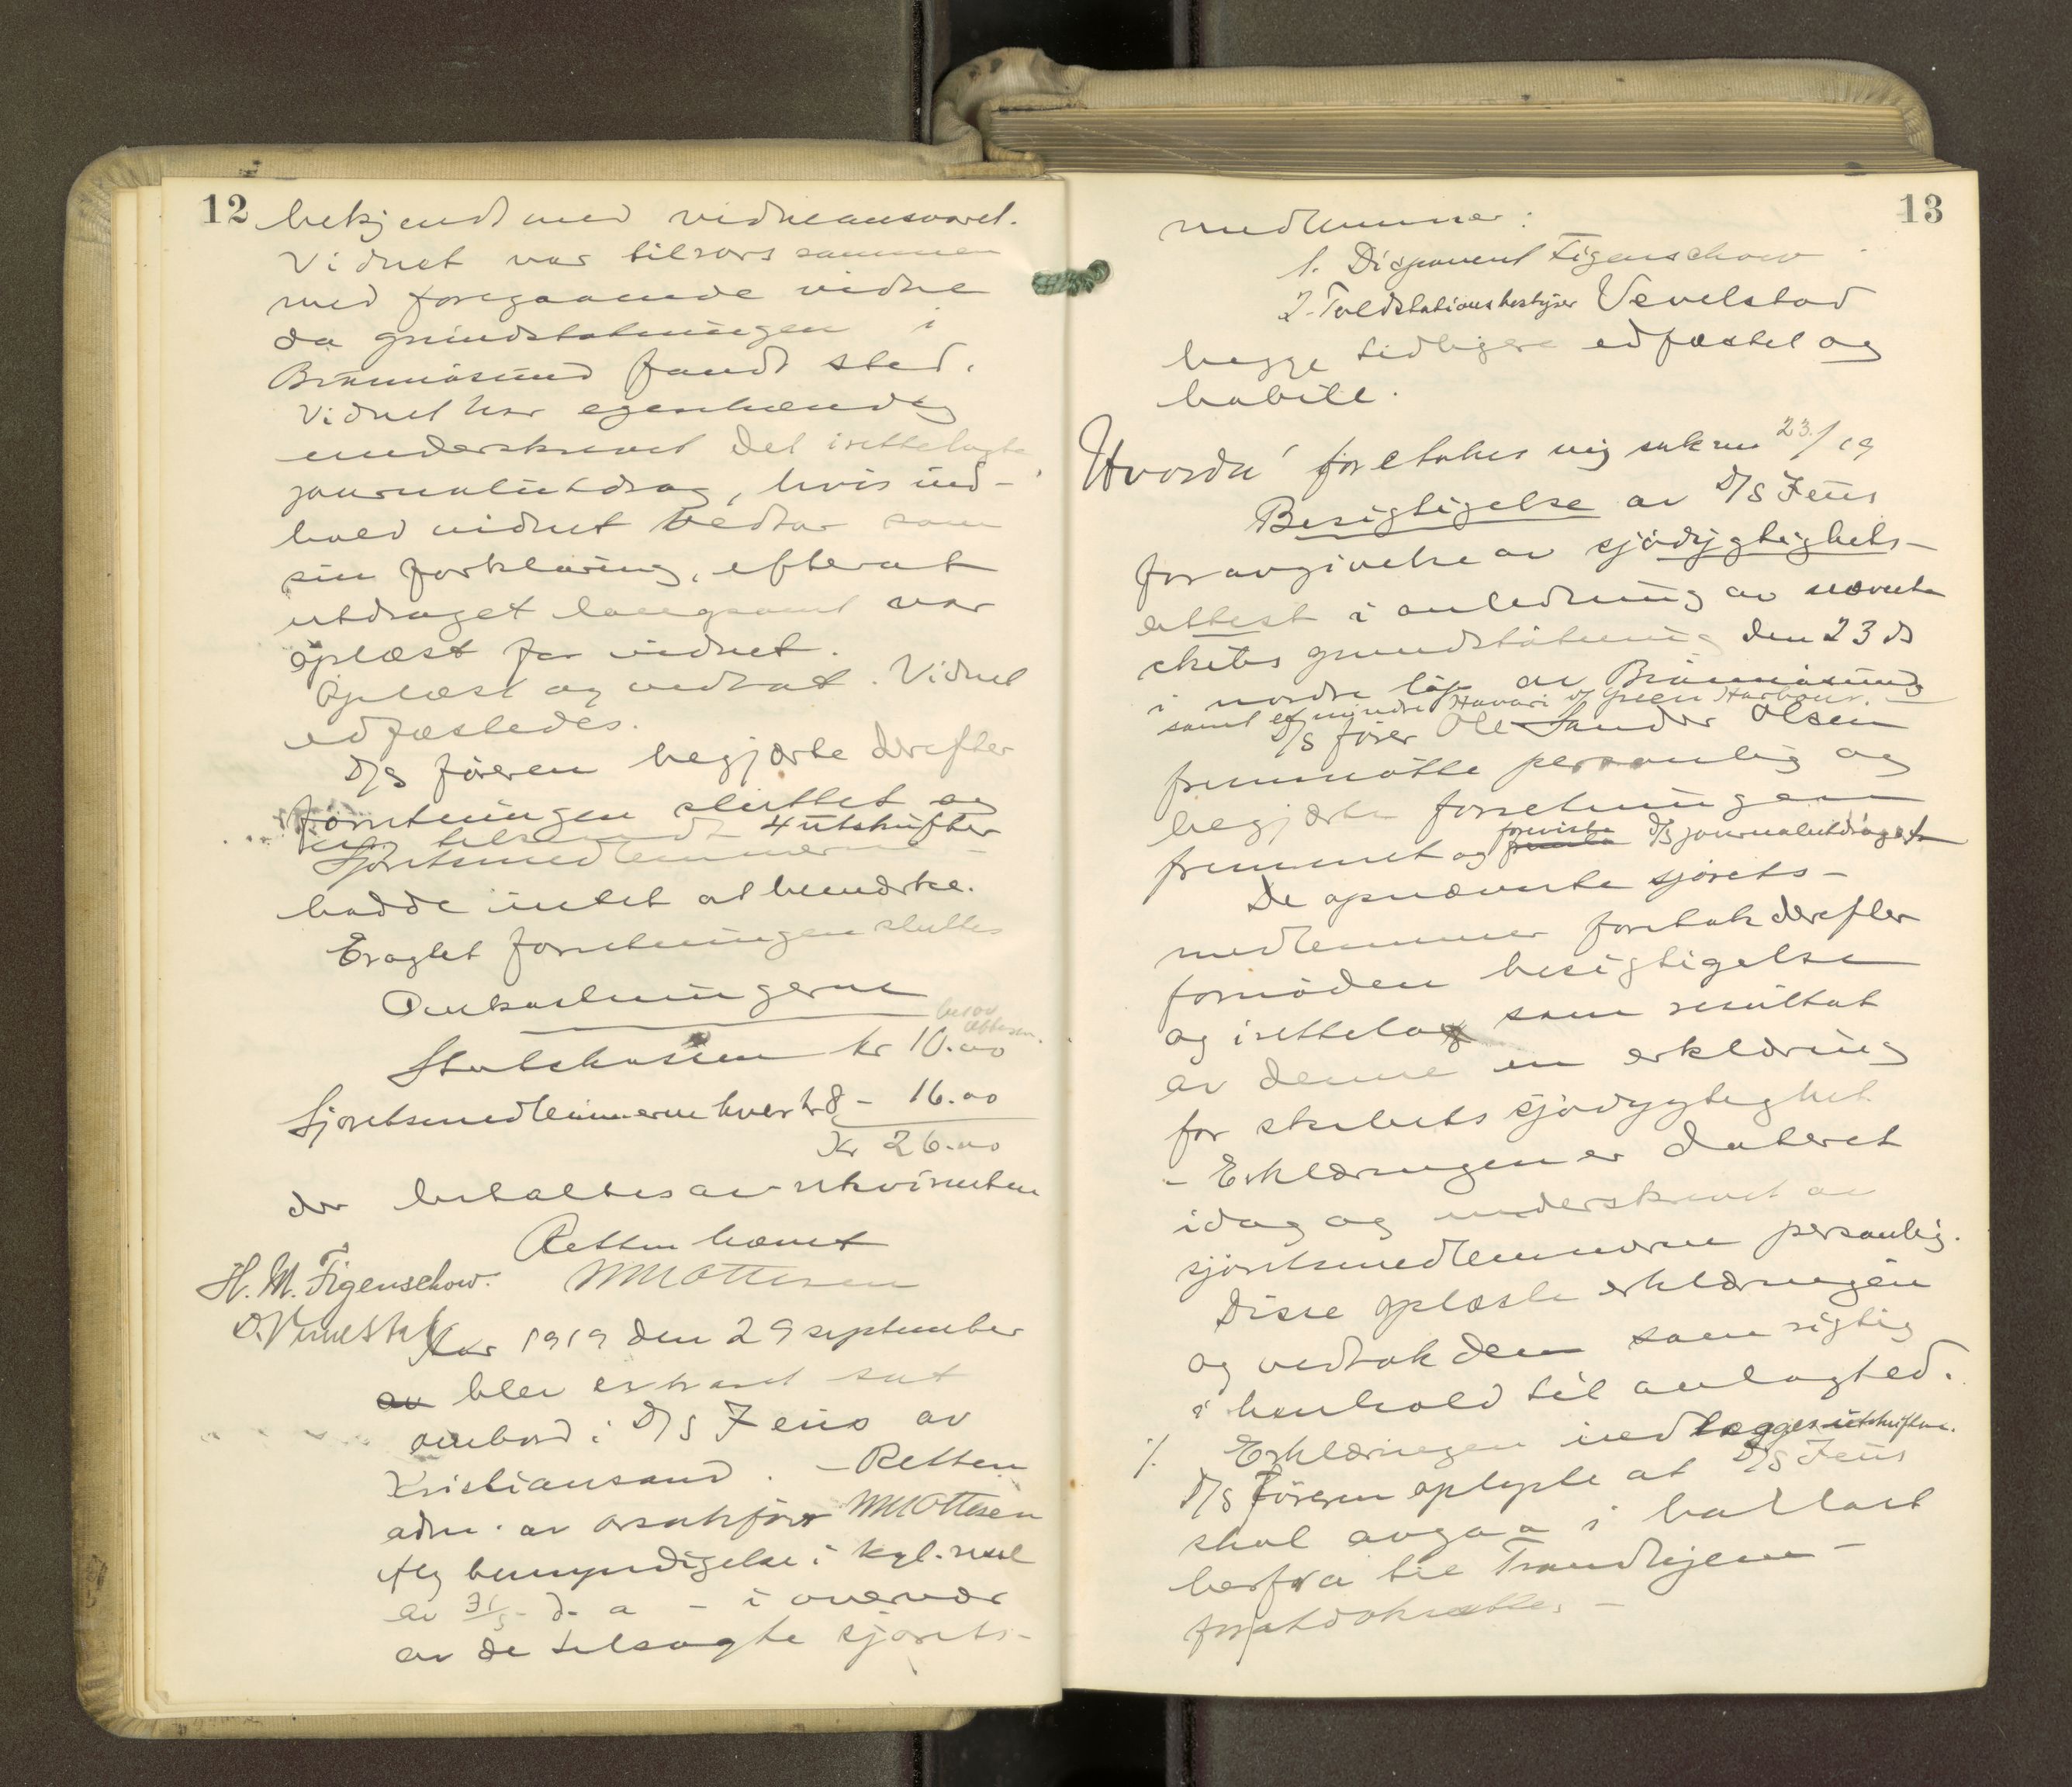 12
bekjendt med vidneansvaret.
Vidnet var tilrors sammen
med foregaaende vidne
da grundstøtningen i
Brønnøsund fandt sted.
Vidnet har egenhændig
underskrevet det irettelagte
journalutdrag, hvis ind-
hold vidnet vedtar som
sin forklaring, efterat
utdraget langsomt var
oplæst for vidnet.
Oplæst og vedtat. Vidnet
edfæstedes.
D/S føreren begjærte derefter
forretningen sluttet og
sig tilsendt 4 utskrifter
Sjøretsmedlemmerne
hadde intet at bemærke.
Eragtet forretningen sluttes
Omkostningerne
Statskassen kr 10.00
Sjøretsmedlemmerne hver kr 8 - 16.00
Kr 26.00
der betaltes av rekvirenten
Retten hævet
H. M. Figenschow. MMOttesen
D. Vevelstad
Aar 1919 den 29 september
av blev extraret sat
ombord i D/S Zeus av
Kristiansand. - Retten
adm. av MMOttesen
iflg bemyndigelse i kgl. resl
av 31/5 d. a - i overvær
av de tilsagte sjørets-
13
medlemmer:
1. Disponent Figenschow
2. Toldstationsbestyrer Vevelstad
begge tidligere edfæstet og
habile.
Hvorda' foretokes sak no 23/19
Besigtigelse av D/S Zeus
for avgivelse av sjødygtighets-
attest i anledning av nævnte
skibs grundstøtning den 23 ds
i nordre løp av Brønnøsund
samt et mindre Havari i Green Harbour.
D/S fører Ole Sander Olsen
fremmøtte personlig og
begjærte forretningen
fremmet og foreviste D/S journalutdraget
De opnævnte sjørets-
medlemmer foretok derefter
fornøden besigtigelse
og irettela som resultat
av denne en erklæring
for skibets sjødygtighet
- Erklæringen er dateret
idag og underskrevet av
sjøretsmedlemmerne personlig.
Disse oplæste erklæringen
og vedtok den som rigtig
i henhold til avlagt ed.
⁒ Erklæringen vedlægges utskriften.
D/S føreren oplyste at D/S Zeus
skal avgaa i ballast
herfra til Trondhjem -
for at doksættes -